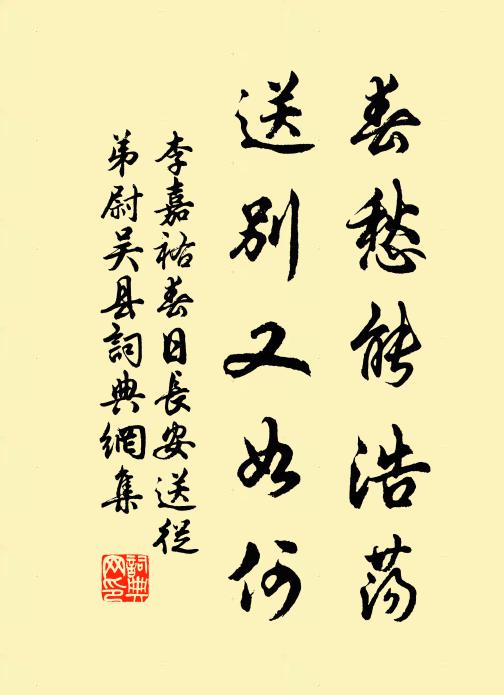 春愁能浩荡
送别又如何
李嘉祐春日長安送從
弟尉吴县詞典網集
詞典
网印